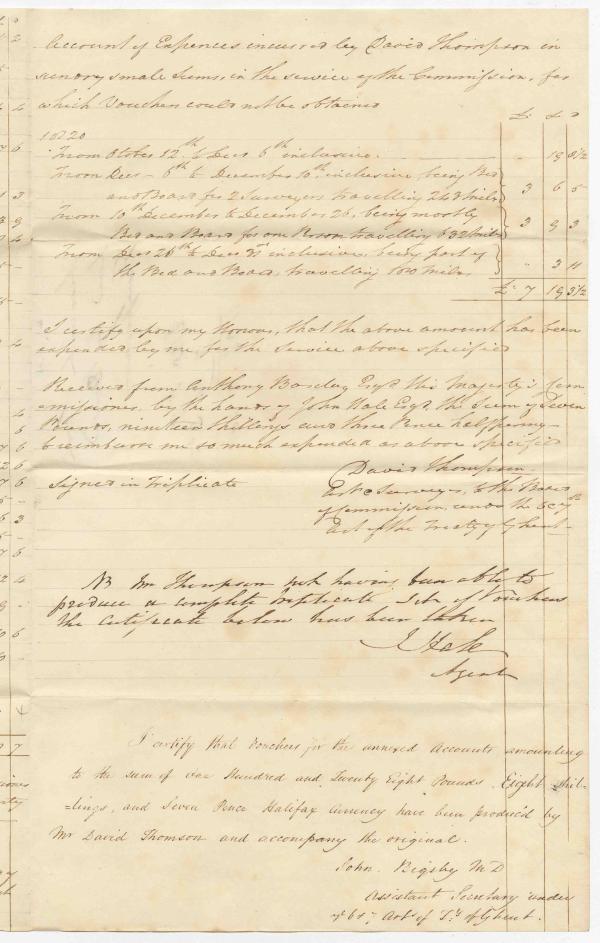 Account of Expences incurred by David Thompson in
sundry small Sums, in the service of the Commission, for
which Vouchers could not be obtained
£ s D
1820
From Octber 12th to Decr 6th inclusive. " 19 3 1/2
From Decr 6th to December 10th inclusive, being Bed
and Board for 2 Surveyors travelling 243 Miles 3 6 5
From 10th December to December 26, being mostly
Bed and Board for one Person travelling 632 Miles 3 9 3
From Decr 26th to Decr inclusive, being part of
the Bed and Board, travelling Miles " 3 4
£ 7 19 3 1/2
I certify upon my Honour, that the above amount has been
expended by me for the Service above specified
Received from Anthony Barclay Esqr His Majesty's Com
=missioner, by the hands of John Hale Esqr the Sum of Seven
Pounds, nineteen Shillings and three Pence halfpenny
to reimburse me so much expended as above specified
David Thompson
Signed in Triplicate
Astr & Surveyor, to the Board
of Commission, under the 6 & 7th
Art of the Treaty of Ghent
NB Mr Thompson not having been able to
produce a complete Triplicate Set of Vouchers
the Certificate below has been taken
J Hale
Agent
I certify that Vouchers for the annexed Accounts amounting
to the sum of one Hundred and Twenty Eight Pounds, Eight Shil=
=lings, and Seven Pence Halifax Currency have been produc'd by
Mr David Thomson and accompany the original.
John Bigsby MD
Assistant Secretary under
6 & 7 Arts of Ty of Ghent.